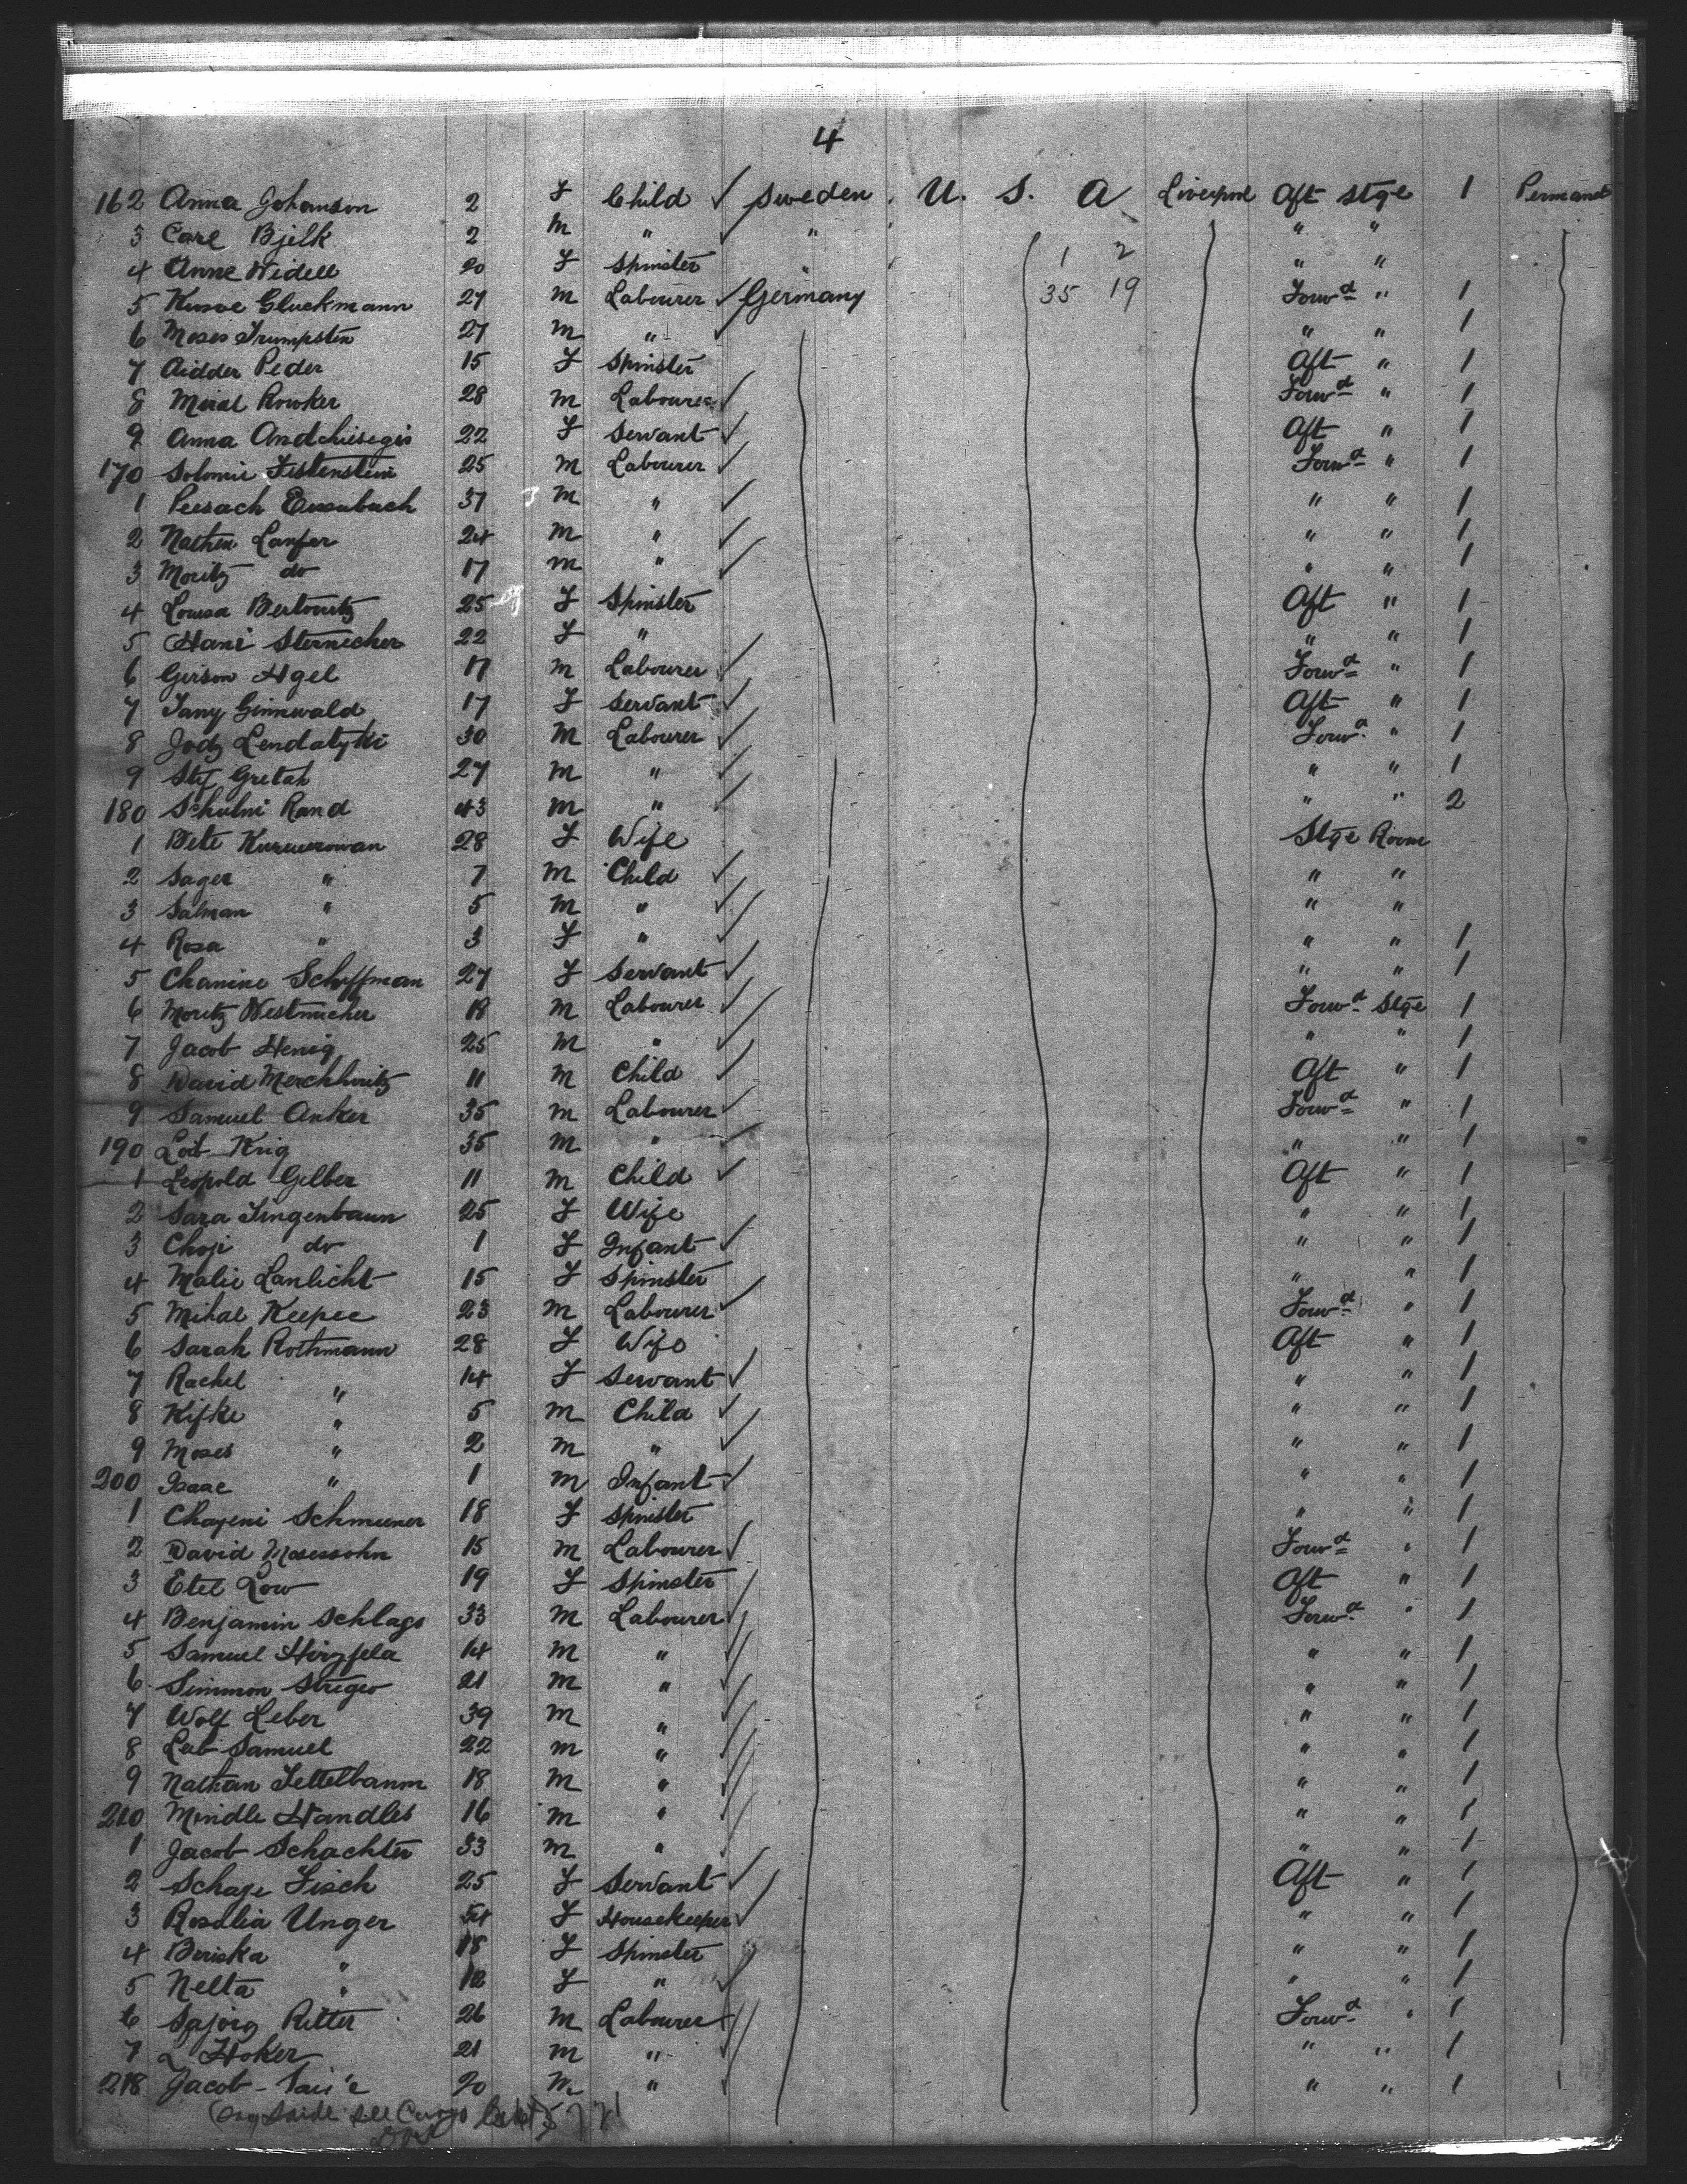 4
162 Anna Johanson 2 F Child ✓ Sweden U. S. A Liverpool Aft Stge 1 Permanet
3 Carl Bjelk 2 M " ✓ " " "
4 Anne Widell 20 F Spinster " 1 2 " "
5 Gluckmann 27 M Labourer ✓ Germany 35 19 Forwd " 1
6 Moses Trumpsten 27 M " ✓ " " 1
7 Aidder Peder 15 F Spinster Aft " 1
8 Meral Rowker 28 M Labourer ✓ Forwd " 1
9 Anna 22 F Servant ✓ Aft " 1
170 Solomie Festenstein 25 M Labourer ✓ Forwd " 1
1 Peesach 37 M " ✓ " " 1
2 Nathen Lanfer 24 M " ✓ " " 1
3 Moritz do 17 M " ✓ " " 1
4 Louisa Bertowitz 25 F Spinster Aft " 1
5 Hani Sternecher 22 F " " " 1
6 Gerson Agel 17 M Labourer ✓ Forwd " 1
7 Fany Ginnwald 17 F Servant ✓ Aft " 1
8 Jody Lendatyki 30 M Labourer ✓ Forwd " 1
9 Stef Gretah 27 M " ✓ " " 1
180 Schulni Rand 43 M " ✓ " " 2
1 Bete 28 F Wife Stge Room
2 Sager " 7 M Child ✓ " "
3 Salman " 5 M " ✓ " "
4 Rosa " 3 F " ✓ " " 1
5 Chanine Schiffman 27 F Servant ✓ " " 1
6 Moritz Westmicher 18 M Labourer ✓ Forwd Stge 1
7 Jacob Henig 25 M " ✓ " " 1
8 David Merchkovitz 11 M Child ✓ Aft " 1
9 Samuel Anker 35 M Labourer ✓ Forwd " 1
190 Lob Krig 35 M " ✓ " " 1
1 Leopold Gelber 11 M Child ✓ Aft " 1
2 Sara Singenbaun 25 F Wife " " 1
3 Choji do 1 F Infant ✓ " " 1
4 Malie Lanlicht 15 F Spinster " " 1
5 Mihal Keepee 23 M Labourer ✓ Forwd " 1
6 Sarah Rothmann 28 F Wife Aft " 1
7 Rachel " 14 F Servant ✓ " " 1
8 Kifke " 5 M Child ✓ " " 1
9 Moses " 2 M " ✓ " " 1
200 Isaac " 1 M Infant ✓ " " 1
1 Chajeni Schmeener 18 F Spinster " " 1
2 David Mosessohn 15 M Labourer ✓ Forwd " 1
3 Etel Low 19 F Spinster Aft " 1
4 Benjamin Schlags 33 M Labourer ✓ Forwd " 1
5 Samuel Hirzfela 14 M " ✓ " " 1
6 Simmon Streger 21 M " ✓ " " 1
7 Wolf Leber 39 M " ✓ " " 1
8 Leb Samuel 22 M " ✓ " " 1
9 Nathan Tettelbaum 18 M " ✓ " " 1
210 Mindle Handles 16 M " ✓ " " 1
1 Jacob Schachter 33 M " ✓ " " 1
2 Schaje Fisch 25 F Servant ✓ Aft " 1
3 Rosalia Unger 54 F Housekeeper ✓ " " 1
4 Beriska " 18 F Spinster " " 1
5 Nelta " 12 F " ✓ " " 1
6 Sajorg Ritter 26 M Labourer ✓ Forwd " 1
7 L Hoker 21 M " ✓ " " 1
218 Jacob 20 M " ✓ " " 1